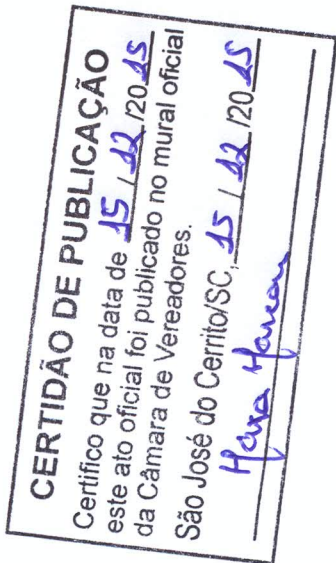 CERTIDÃO DE PUBLICAÇÃO
Certifico que na data de 15 / 12 /2015
este ato oficial foi publicado no mural oficial
da Câmara de Vereadores.
São José do Cerrito/SC, 15 / 12 /2015